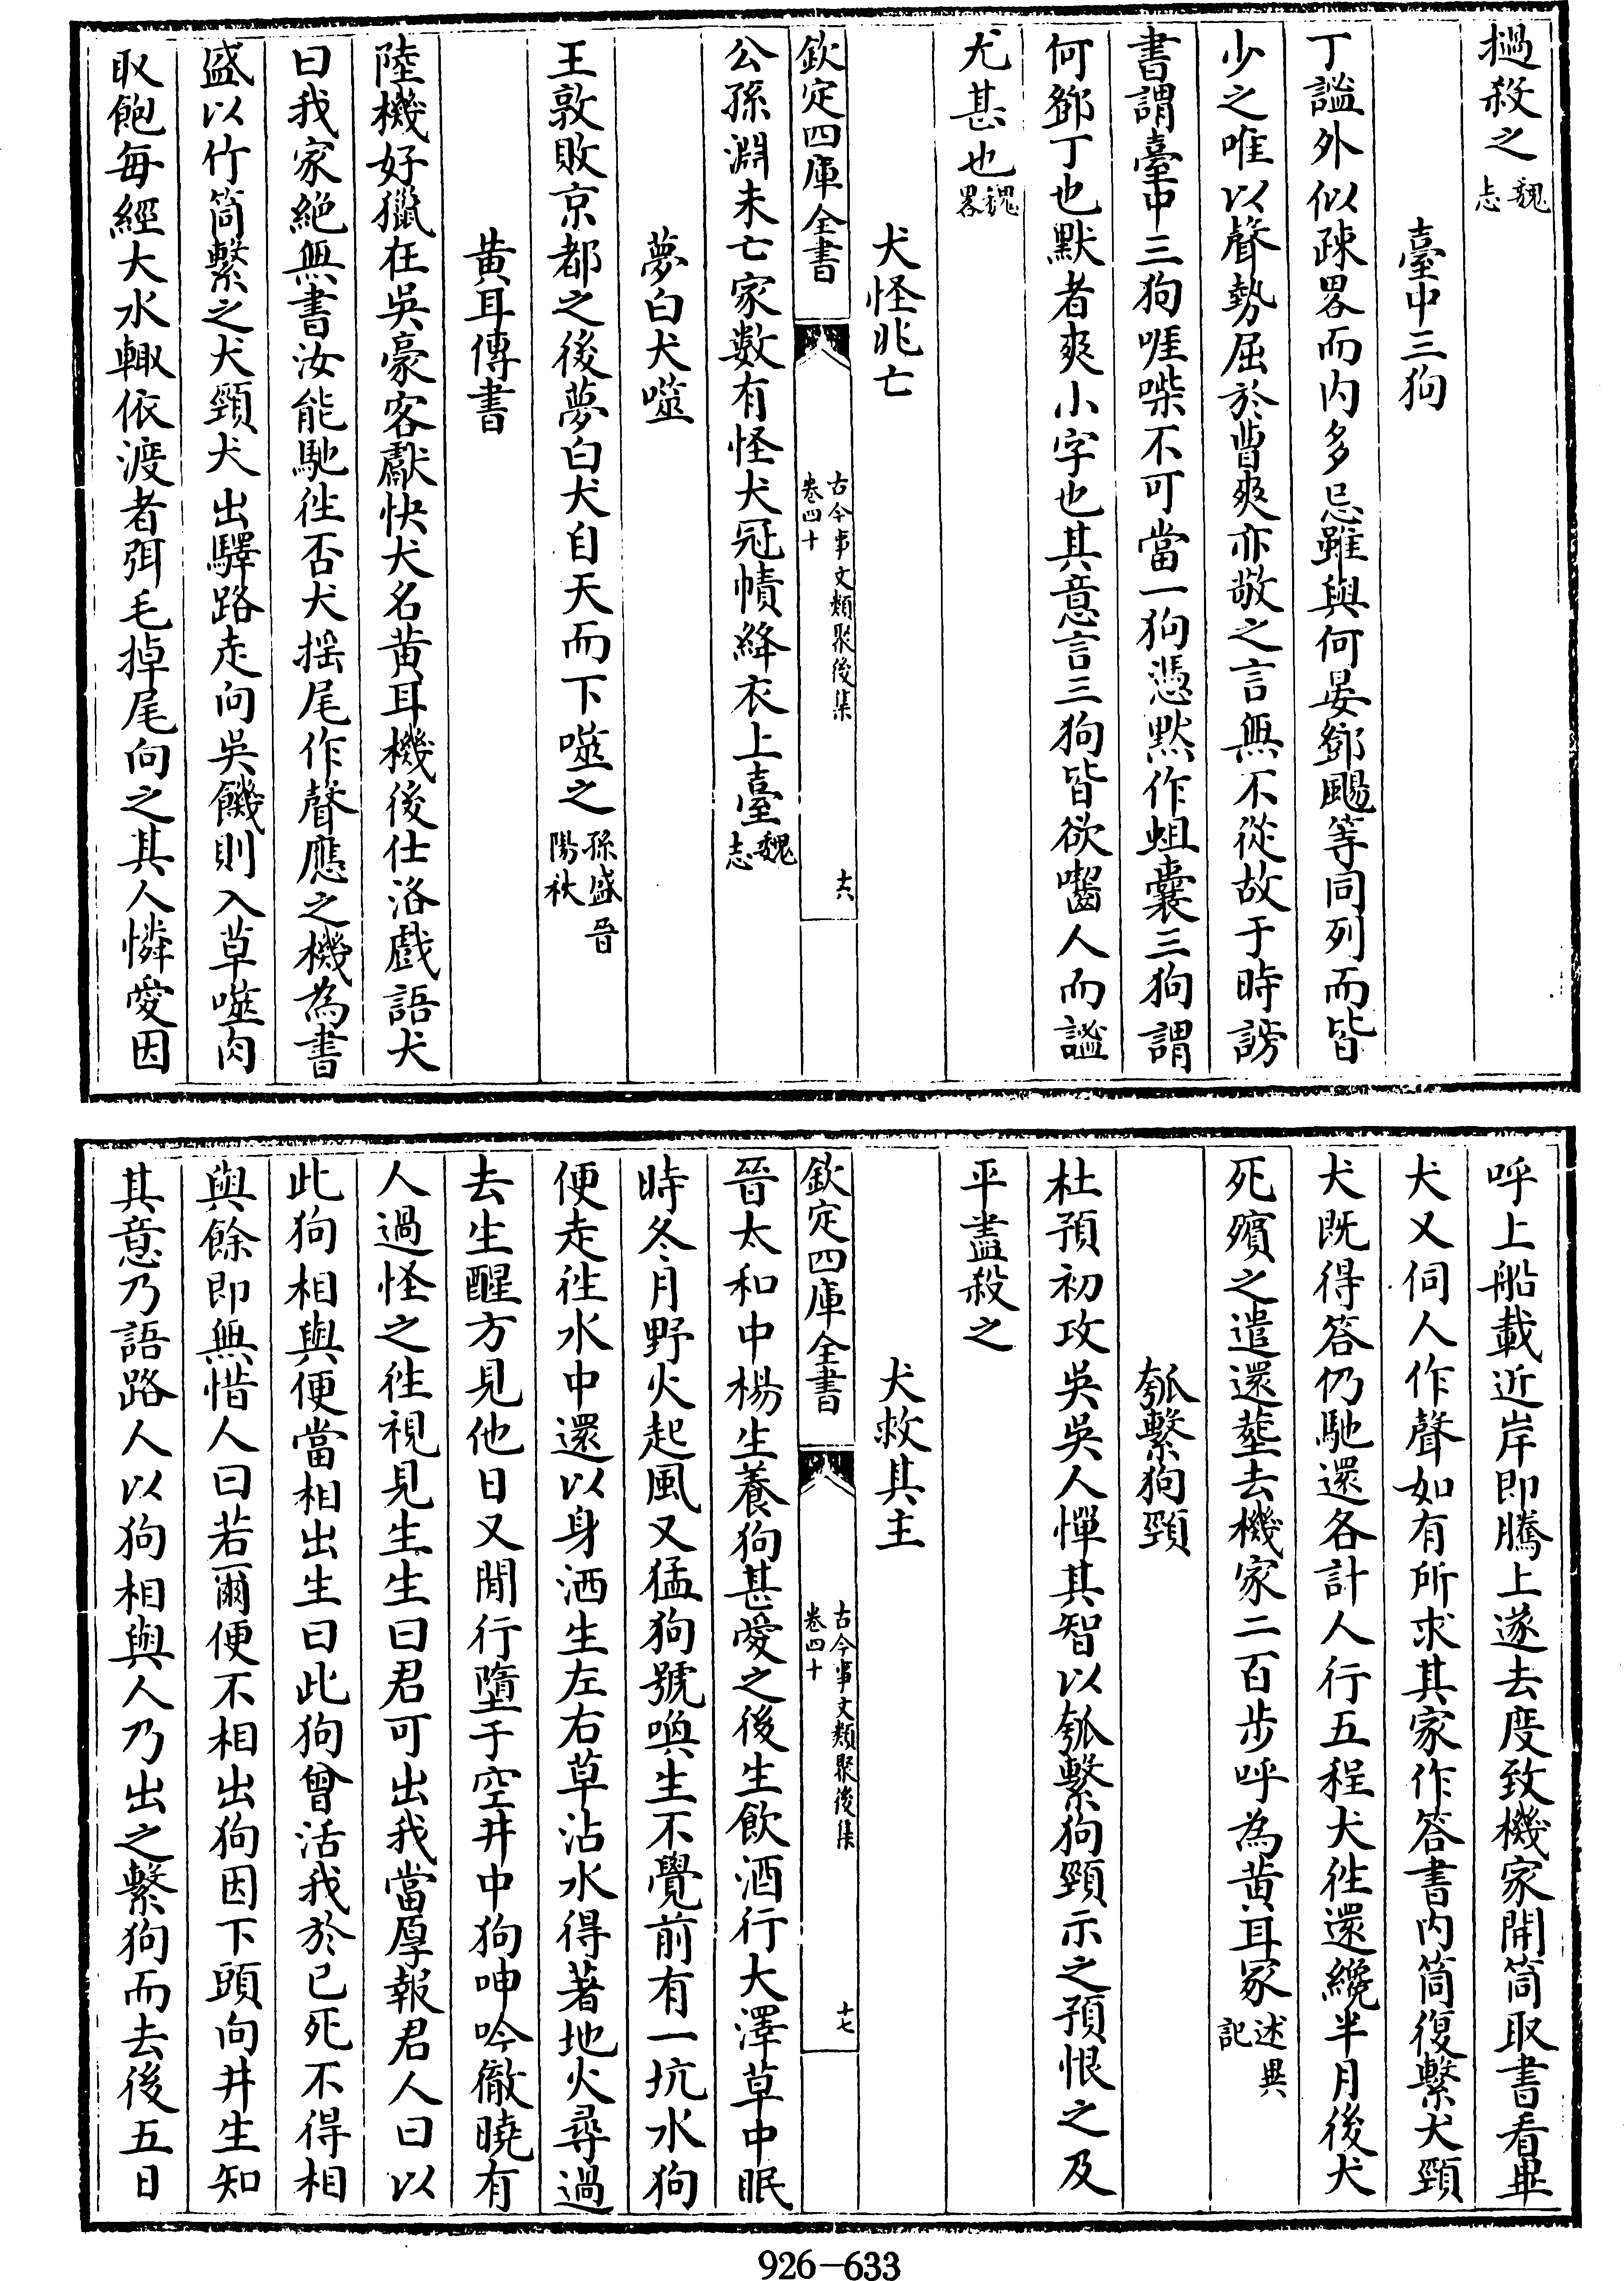 撾殺之魏志
臺中三狗
丁謐外似疎畧而内多忌雖與何晏鄧颺等同列而皆
少之唯以聲勢屈於曹爽亦敬之言無不從故于時謗
書謂臺中三狗啀喍不可當一狗憑默作蛆囊三狗謂
何鄧丁也默者爽小字也其意言三狗皆欲嚙人而謐
尤甚也魏畧
犬怪兆亡
欽定四庫全書
古今事文類聚後集
卷四十
十六
公孫淵未亡家數有怪犬冠幘絳衣上臺魏志
夢白犬噬
王敦敗京都之後夢白犬自天而下噬之孫盛晉陽秋
黄耳傳書
陸機好獵在吳豪客獻快犬名黄耳機後仕洛戲語犬
曰我家絶無書汝能馳徃否犬揺尾作聲應之機為書
盛以竹筒繫之犬頸犬出驛路走向吳饑則入草噬肉
取飽每經大水輙依渡者弭毛掉尾向之其人憐愛因
呼上船載近岸即騰上遂去度致機家開筒取書看畢
犬又伺人作聲如有所求其家作答書内筒復繫犬頸
犬既得答仍馳還各計人行五程犬徃還纔半月後犬
死殯之遣還塟去機家二百步呼為黄耳冢述異記
瓠繫狗頸
杜預初攻吳吳人憚其智以瓠繫狗頸示之預恨之及
平盡殺之
犬救其主
欽定四庫全書
古今事文類聚後集
卷四十
十七
晉太和中楊生養狗甚愛之後生飲酒行大澤草中眠
時冬月野火起風又猛狗號喚生不覺前有一坑水狗
便走徃水中還以身洒生左右草沾水得著地火尋過
去生醒方見他日又閒行墮于空井中狗呻吟徹曉有
人過怪之徃視見生生曰君可出我當厚報君人曰以
此狗相與便當相出生曰此狗曾活我於已死不得相
與餘即無惜人曰若爾便不相出狗因下頭向井生知
其意乃語路人以狗相與人乃出之繫狗而去後五日
926-633